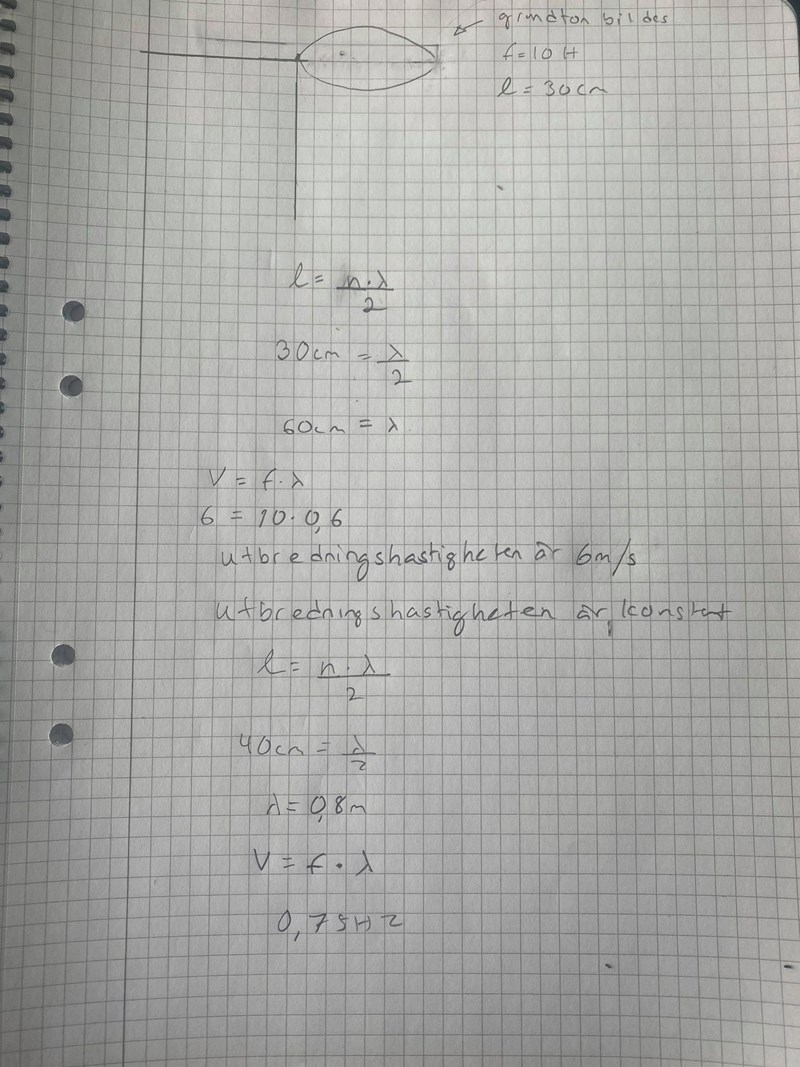 grundton bildes
f = 10 H
l = 30cm
l = n·λ/2
30cm = λ/2
60cm = λ
V = f·λ
6 = 10·0,6
utbredningshastigheten är 6m/s
utbredningshastigheten är konstant
l = n·λ/2
40cm = λ/2
λ = 0,8m
V = f·λ
0,75HZ